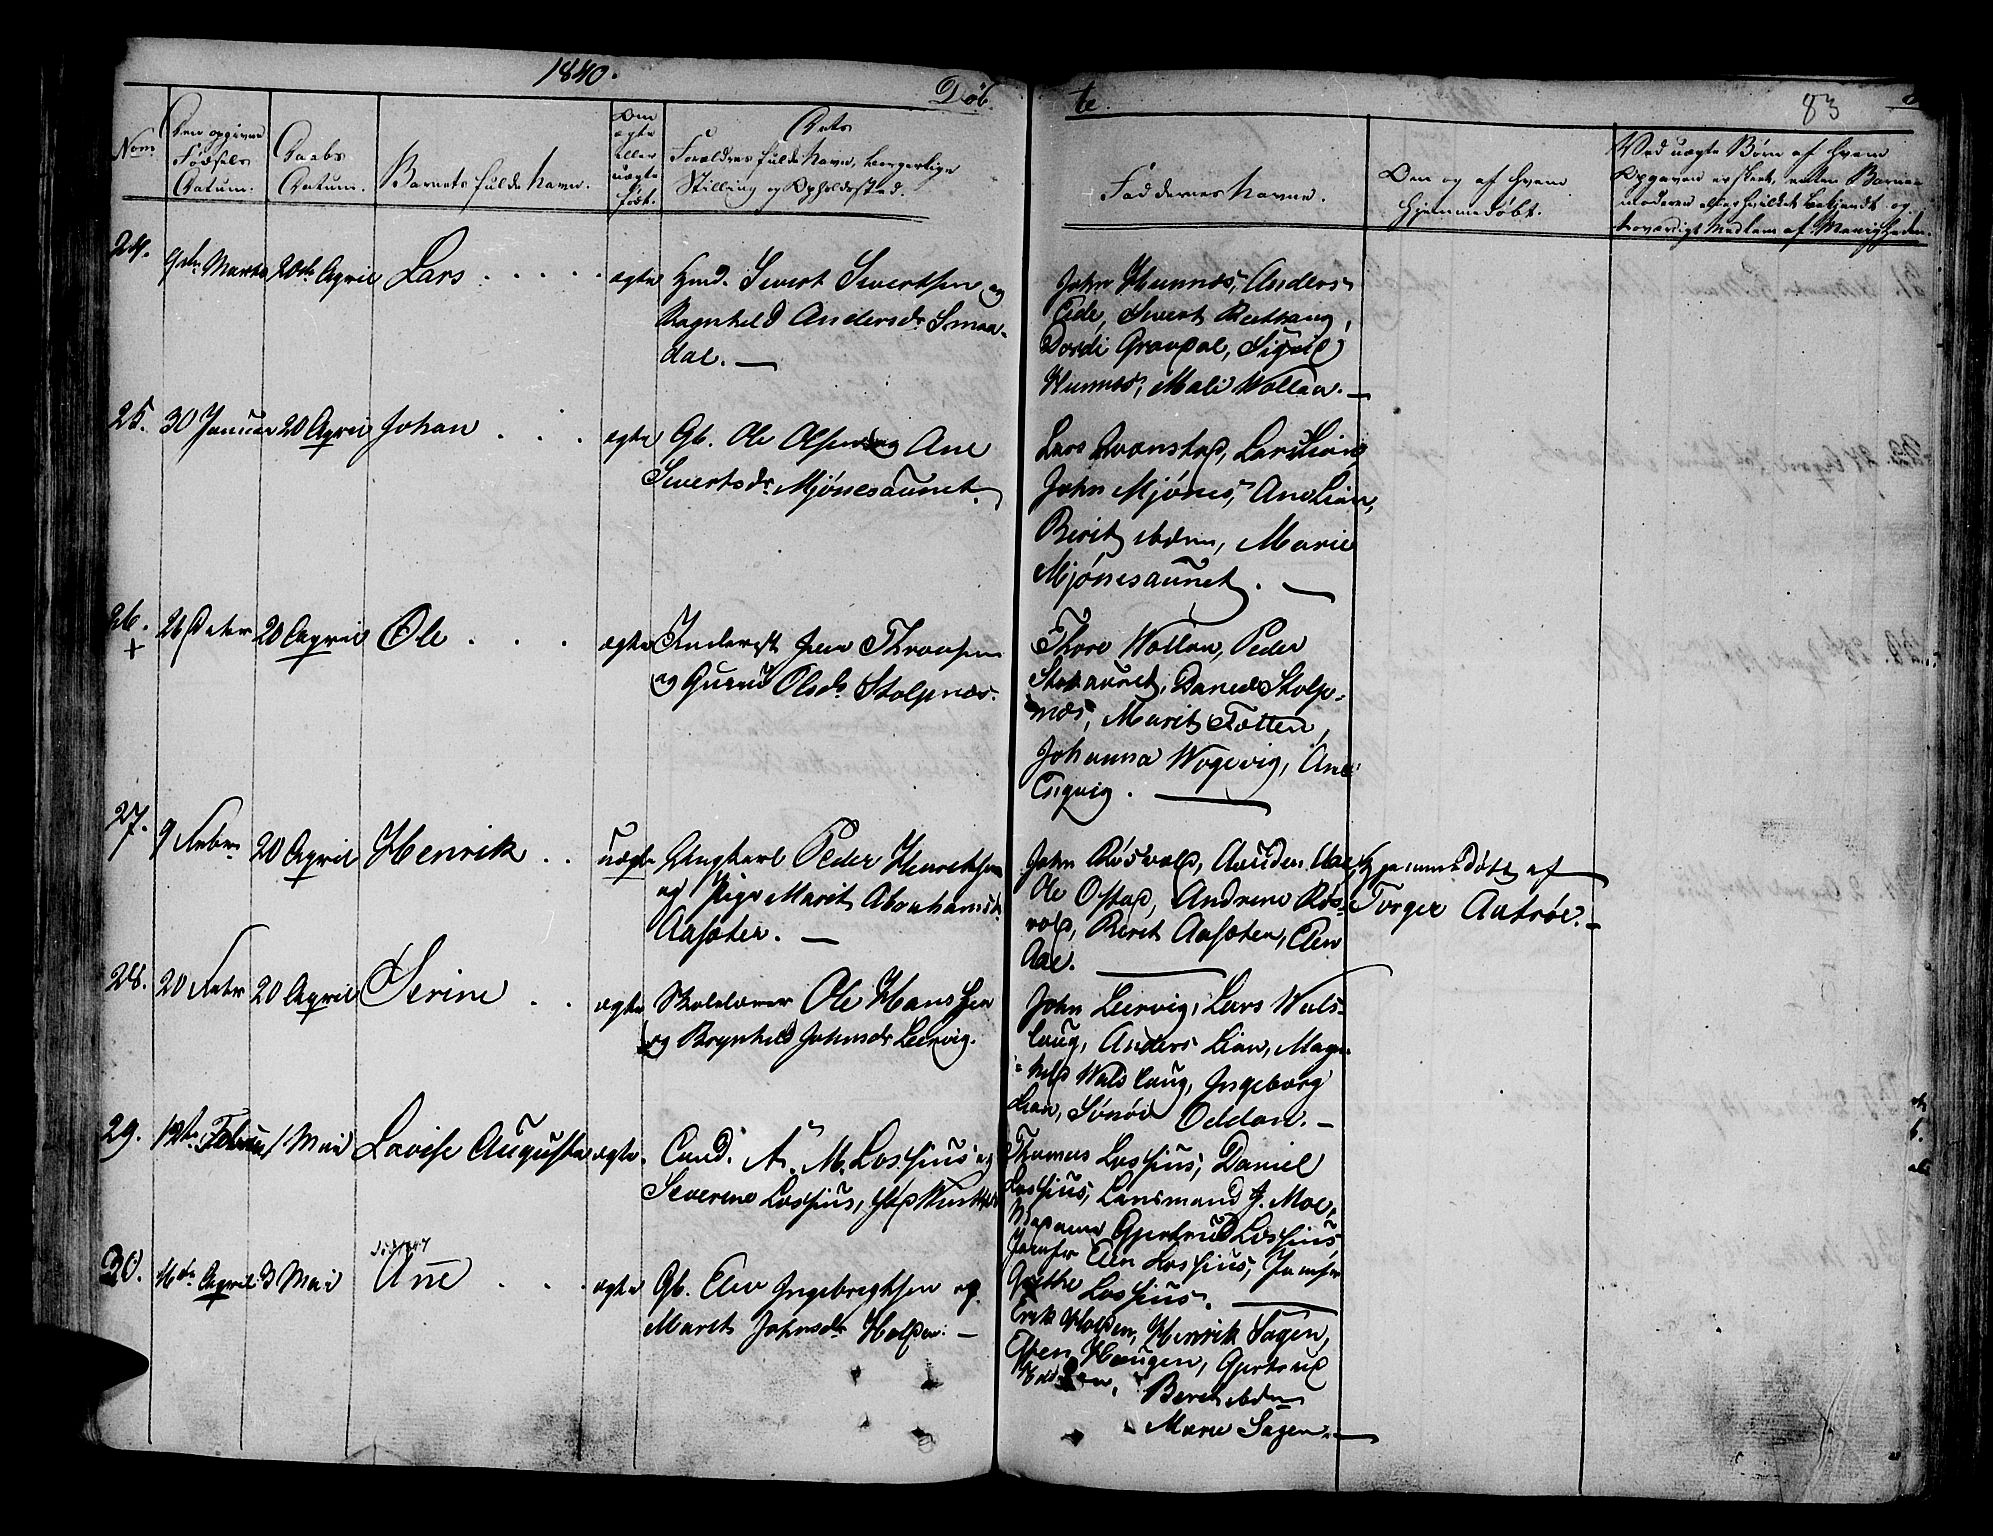 1840.
Døb
te.
83
Nom
Den opgivne Fødsels Datum.
Daabs Datum.
Barnets fulde Navn.
Om ægte eller uægte født.
Forældres fulde Navn, borgerlige Stilling og Opholdssted.
Faddernes Navne.
Om og af hvem hjemmedøbt.
Ved uægte Børn af hvem Opgaven er skeet, enten Barnemoderen eller hvilket bekjendt og troværdigt Medlem af Menigheden.
24. 9de Marts 20de April Lars ægte
Gmd. Sivert Sivertsen og
Ragnhild Andersdr Smaa-
dal. —
John Hunnæs, Anders
Eide, Sivert
Dordi Gravdal, Sigrid
Hunnæs, Mali Wollan. —
25. 30 Januar 20 April Johan ægte
Gb. Ole Olsen og Ane
Sivertsdr Mjønesaunet.
Lars Lian
John Mjønes, Ane Lian,
Berit ibdm, Marie
Mjønesaunet. —
26. + 26 Febr 20 April Ole ægte
Inderst Jens Thronsen
og Guru Olsdr Stolpnæs.
Thore Wollan, Peder
Daniel Stolp-
næs, Marit Tøtten,
Johanna Wogevig, Ane
Engvig. —
27. 9 Febr 20 April Henrik uægte
Ungkarl Peder Henriksen
og Pige Marit Abrahamsdr
Aasæter. —
John Røsvold, Auden Aae,
Ole Opstad, Andrine Røs-
vold, Beret Aasæter, Elen
Aae. —
Hjemmedøbt af
Torger Autrøe. —
28. 20 Febr 20 April Serine ægte
Skolelærer Ole Hansen
og Brynhild Johnsdr Leervig.
John Leervig, Lars Wals-
laug, Anders Lian, Magn-
hild Walslaug, Ingeborg
Lian, Synøv Oddan. —
29. 12te Februar 1 Mai Lovise Augusta ægte
Cand. A. M. Lossius og
Severine Lossius,
Thomas Lossius, Daniel
Lossius, Lensmand J. Moe,
Madame Gjertrud Lossius
Jomfr Elen Lossius, Jomfr
Grethe Lossius. —
30. 16de April 3 Mai Ane ægte
Gb. Elev Ingebrigtsen og
Marit Johnsdr Holden. —
Erik Holden, Henrik Sagen,
Esten Haugen, Gjertrud
Beret ibdm
Marie Sagen. —